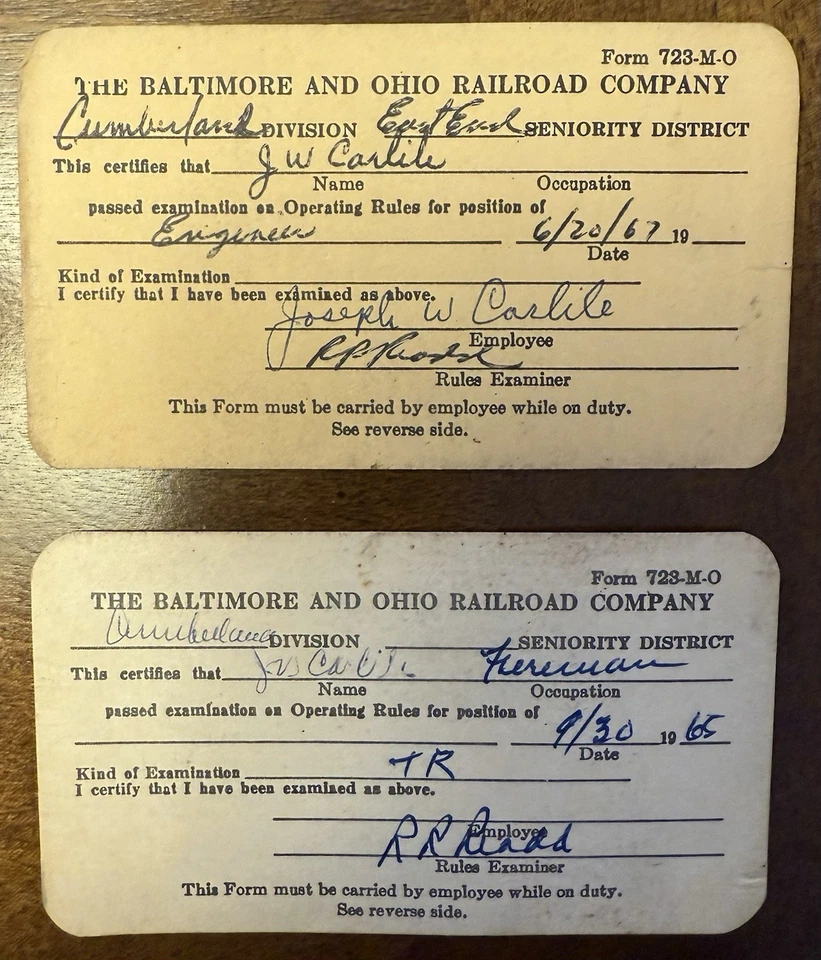 Form 723-M-O
THE BALTIMORE AND OHIO RAILROAD COMPANY
Cumberland DIVISION East End SENIORITY DISTRICT
This certifies that J W Carlile
Name Occupation
passed examination on Operating Rules for position of
Engineer 6/20/67 19
Date
Kind of Examination
I certify that I have been examined as above.
Joseph W Carlile
Employee
Rules Examiner
This Form must be carried by employee while on duty.
See reverse side.
Form 723-M-O
THE BALTIMORE AND OHIO RAILROAD COMPANY
Cumberland DIVISION SENIORITY DISTRICT
This certifies that J W Carlile Fireman
Name Occupation
passed examination on Operating Rules for position of
9/30 19 65
Date
Kind of Examination TR
I certify that I have been examined as above.
Employee
Rules Examiner
This Form must be carried by employee while on duty.
See reverse side.